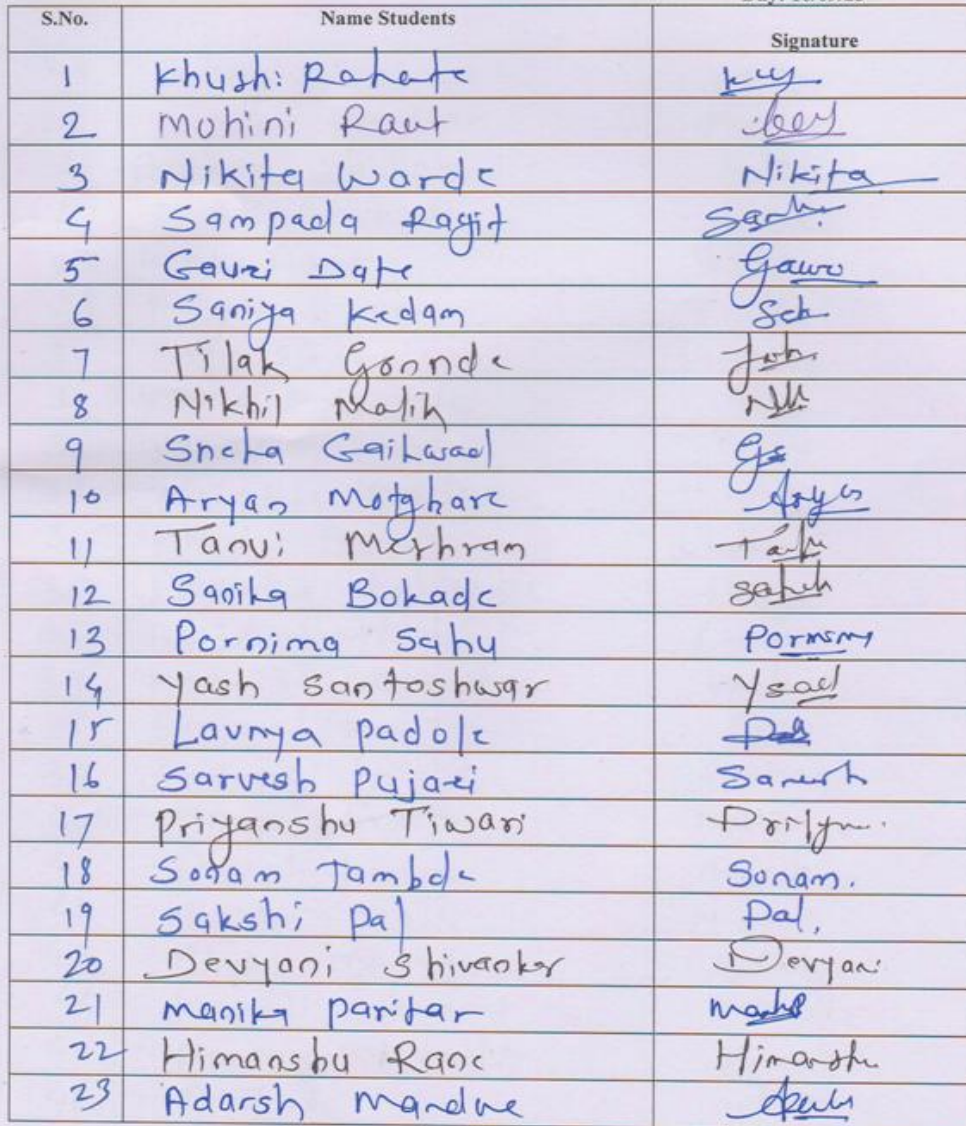 S.No. Name Students Signature
1 Khushi Rahate
2 Mohini Raut
3 Nikita Warde Nikita
4 Sampada Ragit
5 Gauri Date Gauri
6 Saniya Kadam
7 Tilak Gonnde
8 Nikhil Malik
9 Sneha Gaikwad Gs
10 Aryan Motghare Aryan
11 Tanvi Meshram
12 Sanika Bokade
13 Pornima Sahu
14 Yash Santoshwar
15 Lavnya Padole
16 Sarvesh Pujari Sarvesh
17 Priyanshu Tiwari
18 Sonam Tambde Sonam.
19 Sakshi Pal Pal.
20 Devyani Shivankar Devyani
21 Manika Paritar
22 Himanshu Rane Himanshu
23 Adarsh